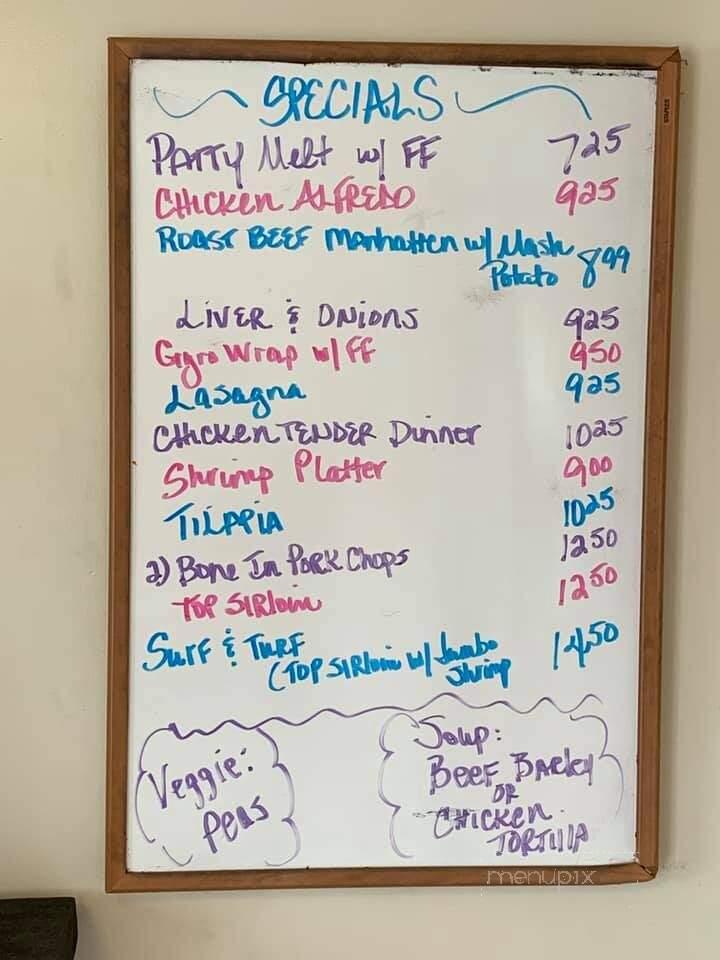 SPECIALS
PATTY Melt w/ FF 725
CHICKEN ALFREDO 925
ROAST BEEF Manhatten w/ Mash
Potato 899
LIVER & ONIONS 925
Gyro Wrap w/ FF 950
Lasagna 925
CHICKEN TENDER Dinner 1025
Shrimp Platter 900
TILAPIA 1025
2) Bone In PORK Chops 1250
TOP SIRloin 1250
Surf & TURF 14.50
(TOP SIRloin w/ Jumbo
Shrimp
Veggie:
Peas
Soup:
BEEF BARley
OR
CHICKEN
TORTIlla
menupix